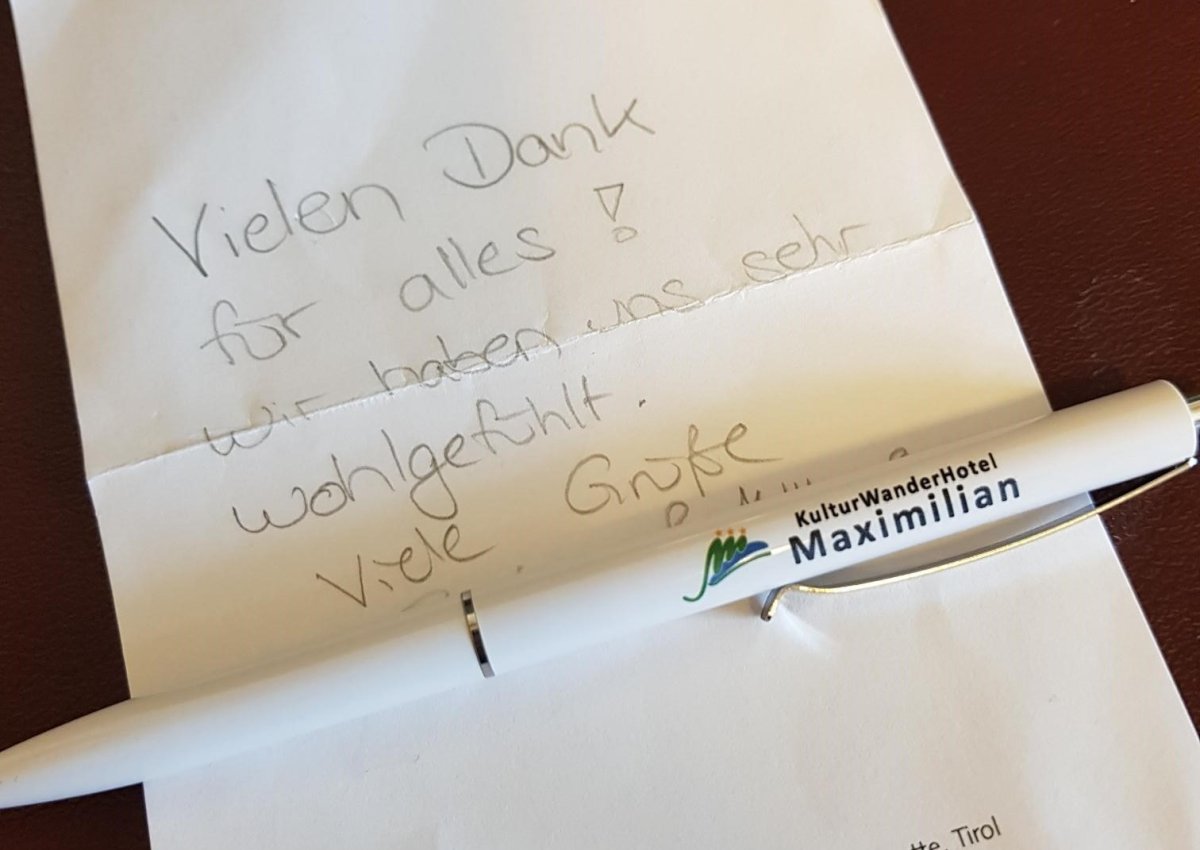 Vielen Dank
für alles!
wir haben uns sehr
wohlgefühlt.
Viele Grüße
KulturWanderHotel
Maximilian
Tirol